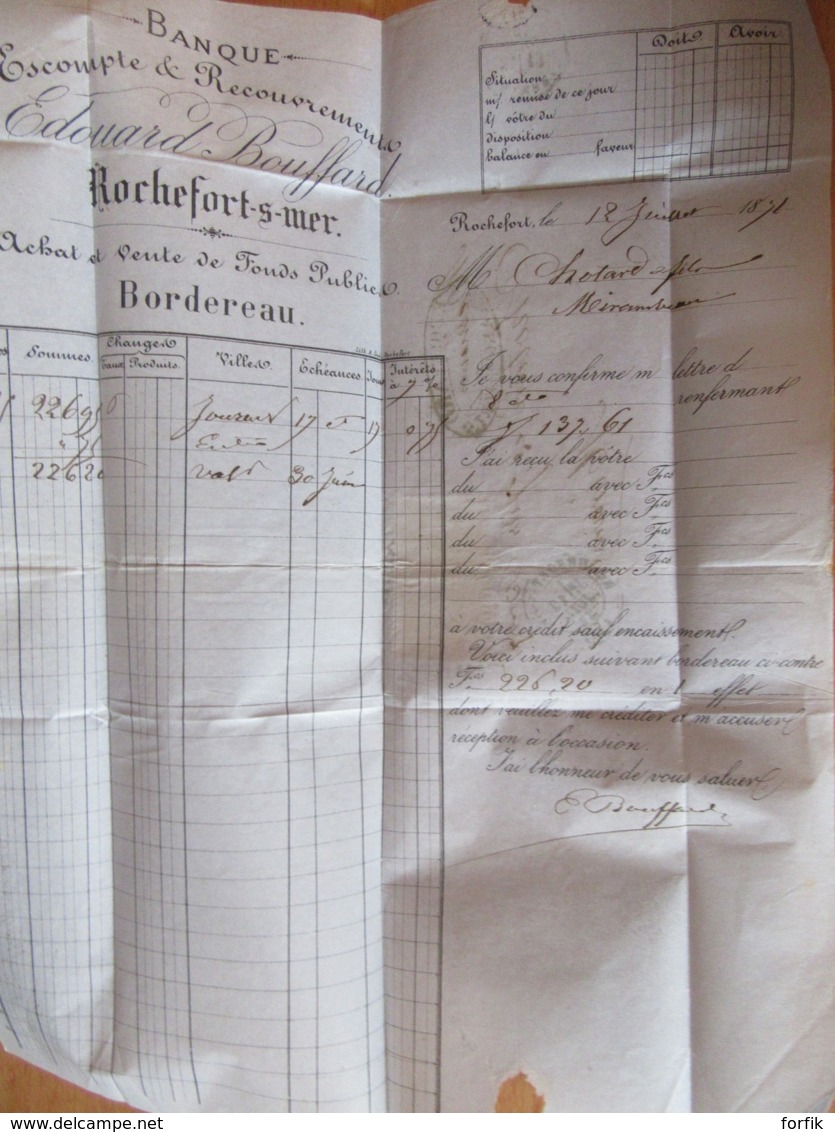 BANQUE
Escompte & Recouvrements
Edouard Bouffard.
Rochefort-s-mer.
Achat et Vente de Fonds Publics.
Bordereau.
Sommes. Changes Villes. Echéances. Jours Intérêts
Taux Produits. à 7 %
226 95 17 19 0 75
" 75
226 20 val 30 Juin
Doit Avoir
Situation
m/ remise de ce jour
l/ vôtre du
disposition
balance en faveur
Rochefort, le 12 Juillet 1871
M Chotard fils
Mirambeau
Je vous confirme m lettre d
8 renfermant
f 137,61
J'ai reçu la vôtre
du avec Fcs
du avec Fcs
du avec Fcs
du avec Fcs
à votre crédit sauf encaissement.
Voici inclus suivant bordereau ci-contre
Fcs 226,20 en 1 effet
dont veuillez me créditer et m'accuser
réception à l'occasion.
J'ai l'honneur de vous saluer
E Bouffard
forfik